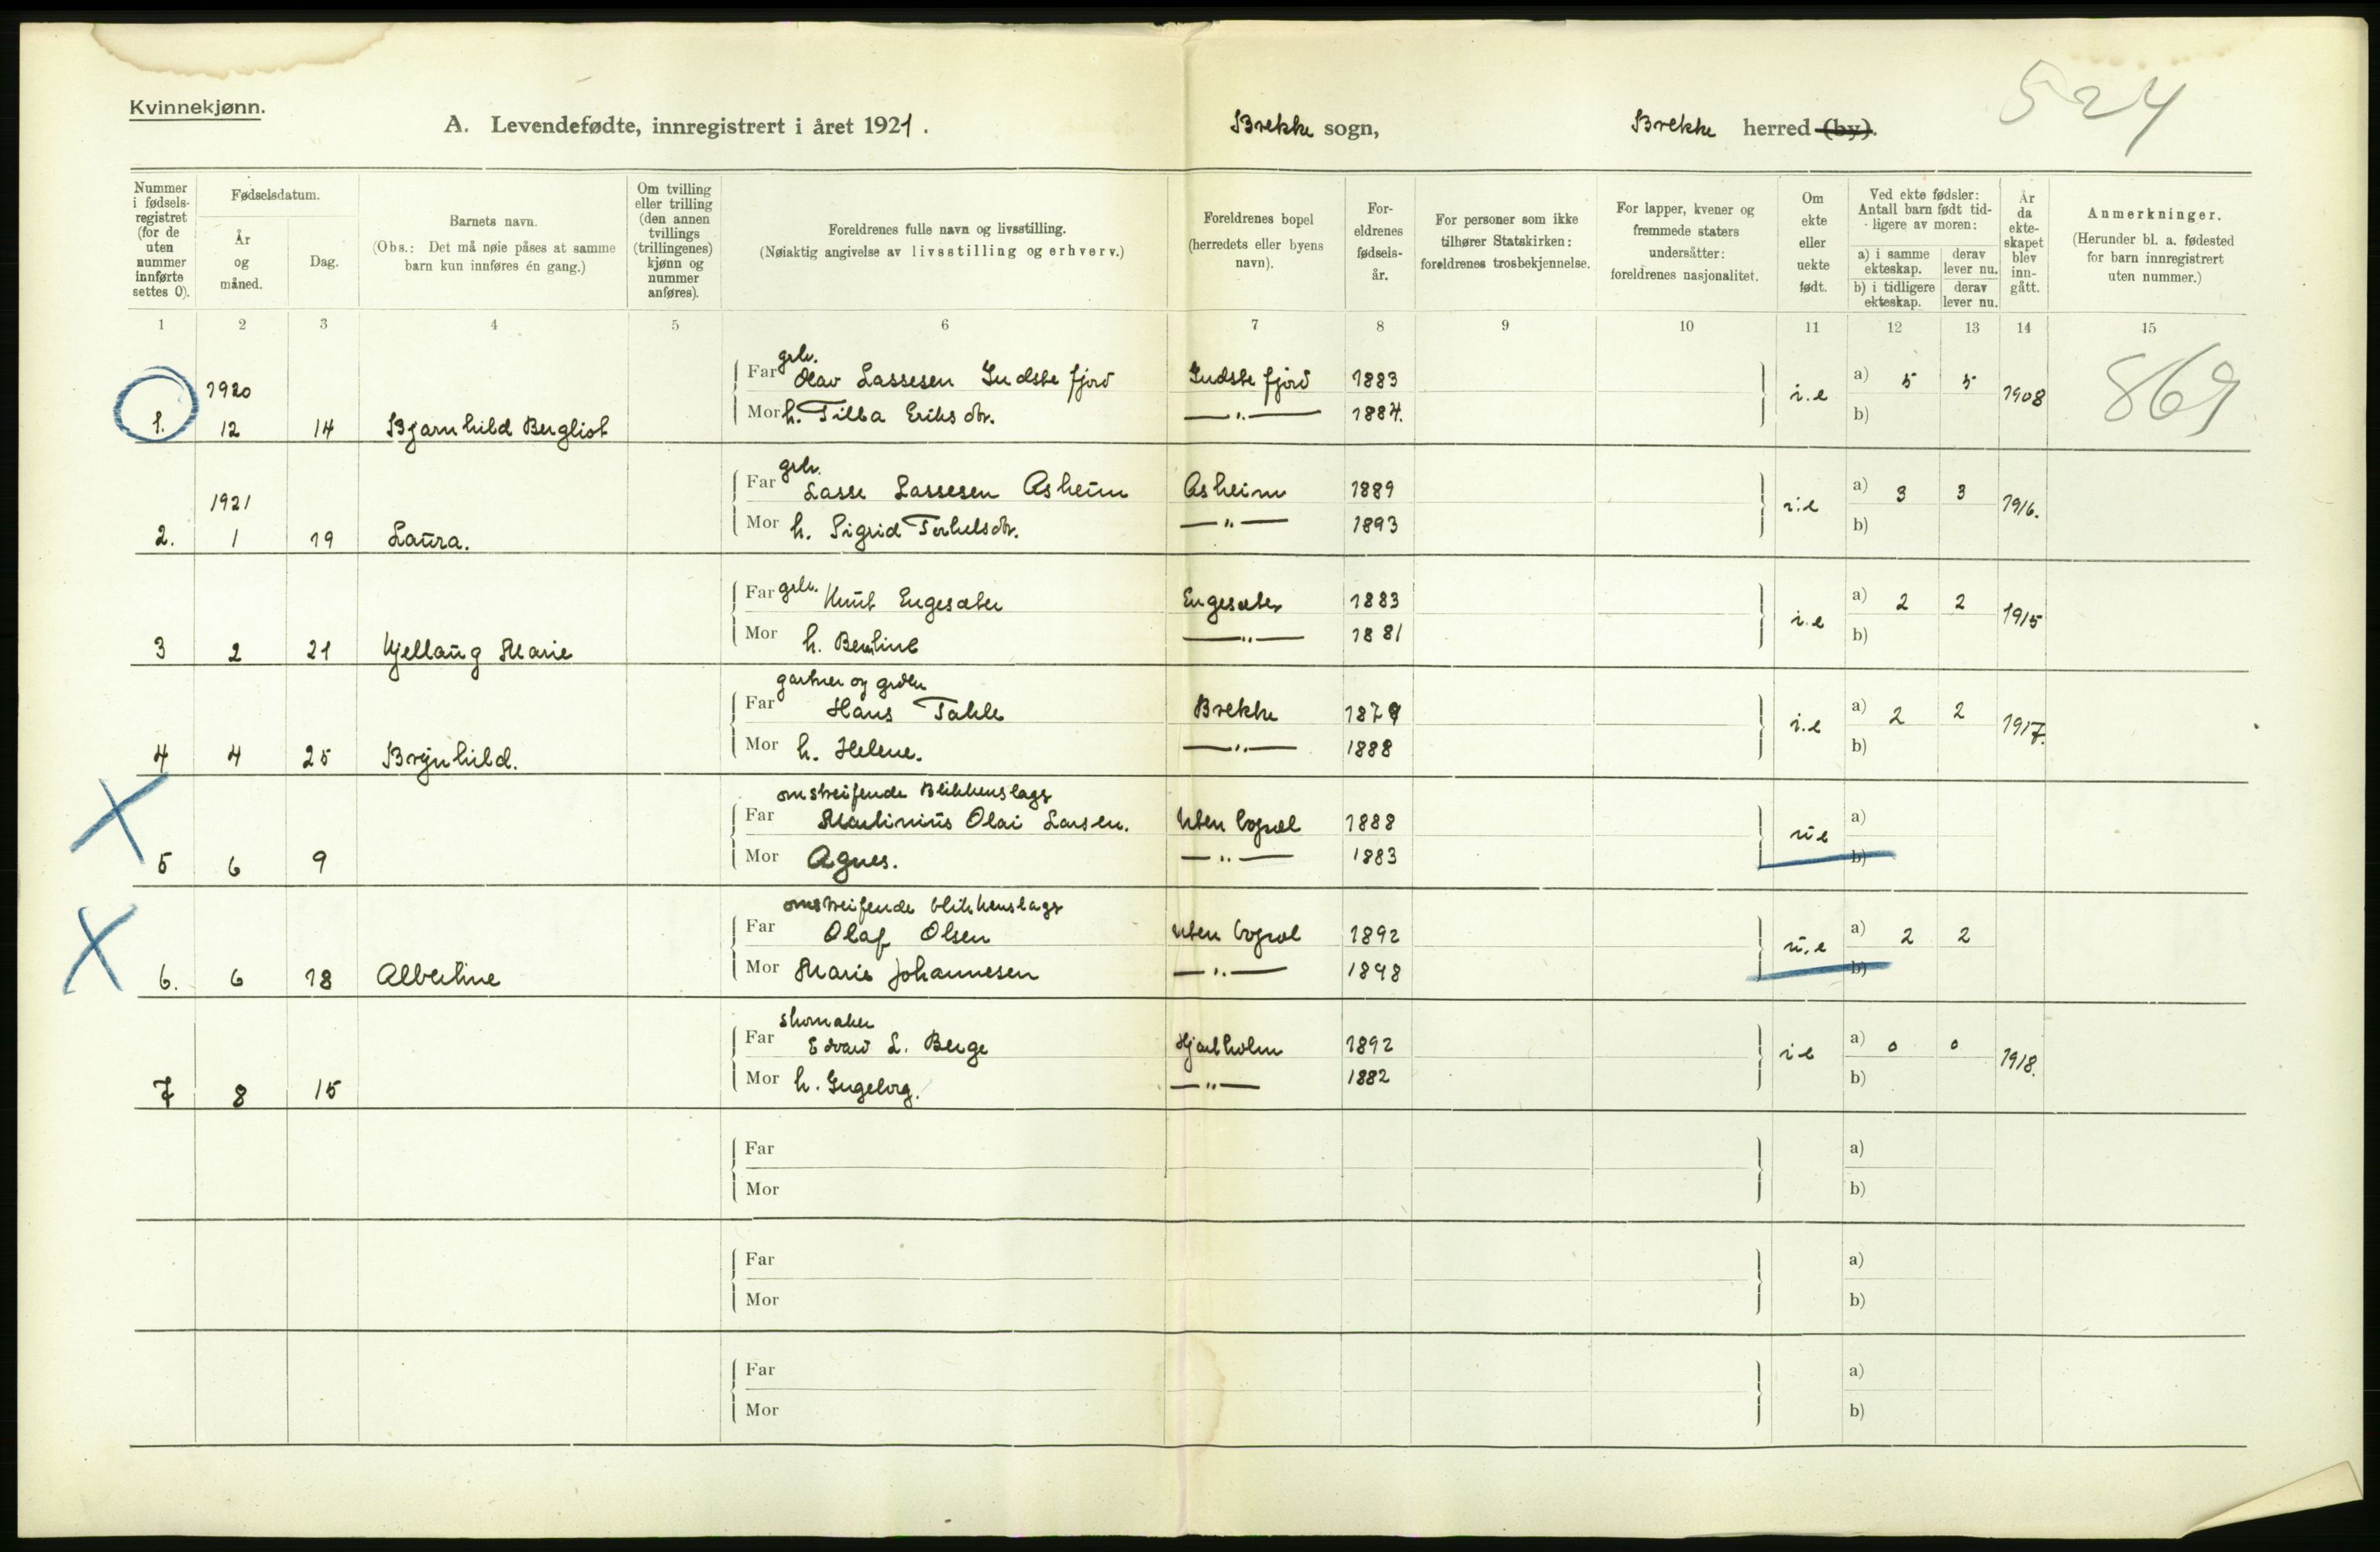 524
Kvinnekjønn.
A. Levendefødte, innregistrert i året 1921. Brekke sogn, Brekke herred (by).
Nummer i fødsels-registret (for de uten nummer innførte settes 0).
Fødselsdatum.
År og måned.
Dag.
Barnets navn.
(Obs.: Det må nøie påses at samme barn kun innføres én gang.)
Om tvilling eller trilling (den annen tvillings (trillingenes) kjønn og nummer anføres).
Foreldrenes fulle navn og livsstilling.
(Nøiaktig angivelse av livsstilling og erhverv.)
Foreldrenes bopel (herredets eller byens navn).
For-eldrenes fødsels-år.
For personer som ikke tilhører Statskirken: foreldrenes trosbekjennelse.
For lapper, kvener og fremmede staters undersåtter: foreldrenes nasjonalitet.
Om ekte eller uekte født.
Ved ekte fødsler: Antall barn født tid-ligere av moren:
a) i samme ekteskap.
derav lever nu.
b) i tidligere ekteskap.
derav lever nu.
År da ekte-skapet blev inn-gått.
Anmerkninger.
(Herunder bl. a. fødested for barn innregistrert uten nummer.)
1 2 3 4 5 6 7 8 9 10 11 12 13 14 15
grbr.
Far Olav Lassesen Indstefjord Indstefjord 1883 a) 5 5
1920 i.e 1908 869
Mor h. Tilla Eriksdtr. —"— 1884. b)
1. 12 14 Bjarnhild Bergliot
grbr.
Far Lasse Lassesen Asheim Asheim 1889 a) 3 3
1921 i.e 1916.
Mor h. Sigrid Torkelsdtr. —"— 1893 b)
2. 1 19 Laura.
Far grbr. Knut Engesæter Engesæter 1883 a) 2 2
i.e 1915
Mor h. Bentine —"— 1881 b)
3 2 21 Kjellaug Marie
gartner og grdbr
Far Hans Takle Brekke 1879 a) 2 2
i.e 1917.
Mor h. Helene. —"— 1888 b)
4 4 25 Brynhild.
omstreifende Blikkenslagr
Far Martinius Olai Larsen. Uten bopæl 1888 a)
u e
Mor Agnes. —"— 1883 b)
5 6 9
omstreifende blikkenslagr
Far Olaf Olsen Uten bopæl 1892 a) 2 2
u.e
Mor Marie Johannesen —"— 1898 b)
6. 6 18 Albertine
skomaker
Far Edvard L. Berge Hjartholm 1892 a) 0 0
i e 1918.
Mor h. Ingeborg. —"— 1882 b)
7 8 15
Far a)
Mor b)
Far a)
Mor b)
Far a)
Mor b)